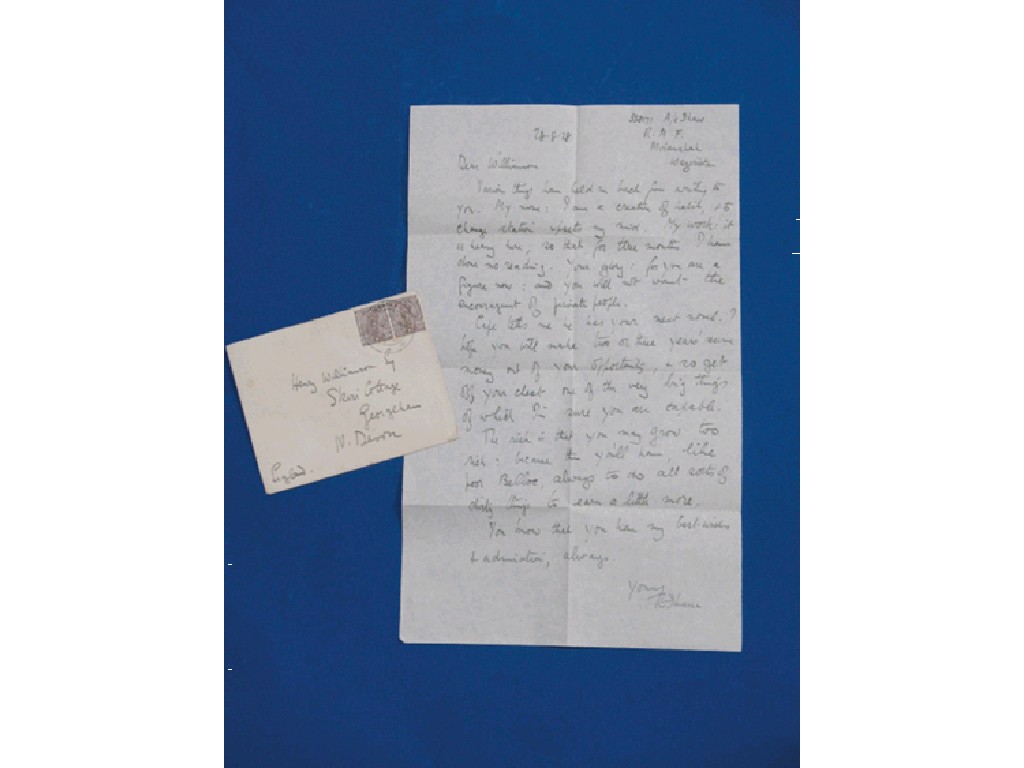 A/c Shaw
R. A. F.
Miranshah
Waziristan
28-8-28
Dear Williamson
Various things have held me back from writing to
you. My move: I am a creature of habit, & to
change station upsets my mind. My work: it
is heavy here, so that for three months I have
done no reading. Your glory: for you are a
figure now: and you will not want the
encouragement of private people.
Cape tells me he has your next novel. I
hope you will make two or three years'
money out of your opportunity, & so get
off your chest one of the very big things
of which I'm sure you are capable.
The risk is that you may grow too
rich: because then you'll have, like
poor Belloc, always to do all sorts of
dirty things to earn a little more.
You know that you have my best wishes
& admiration, always
Yours
T Shaw
Henry Williamson Esq
Skirr Cottage
Georgeham
N. Devon
England.